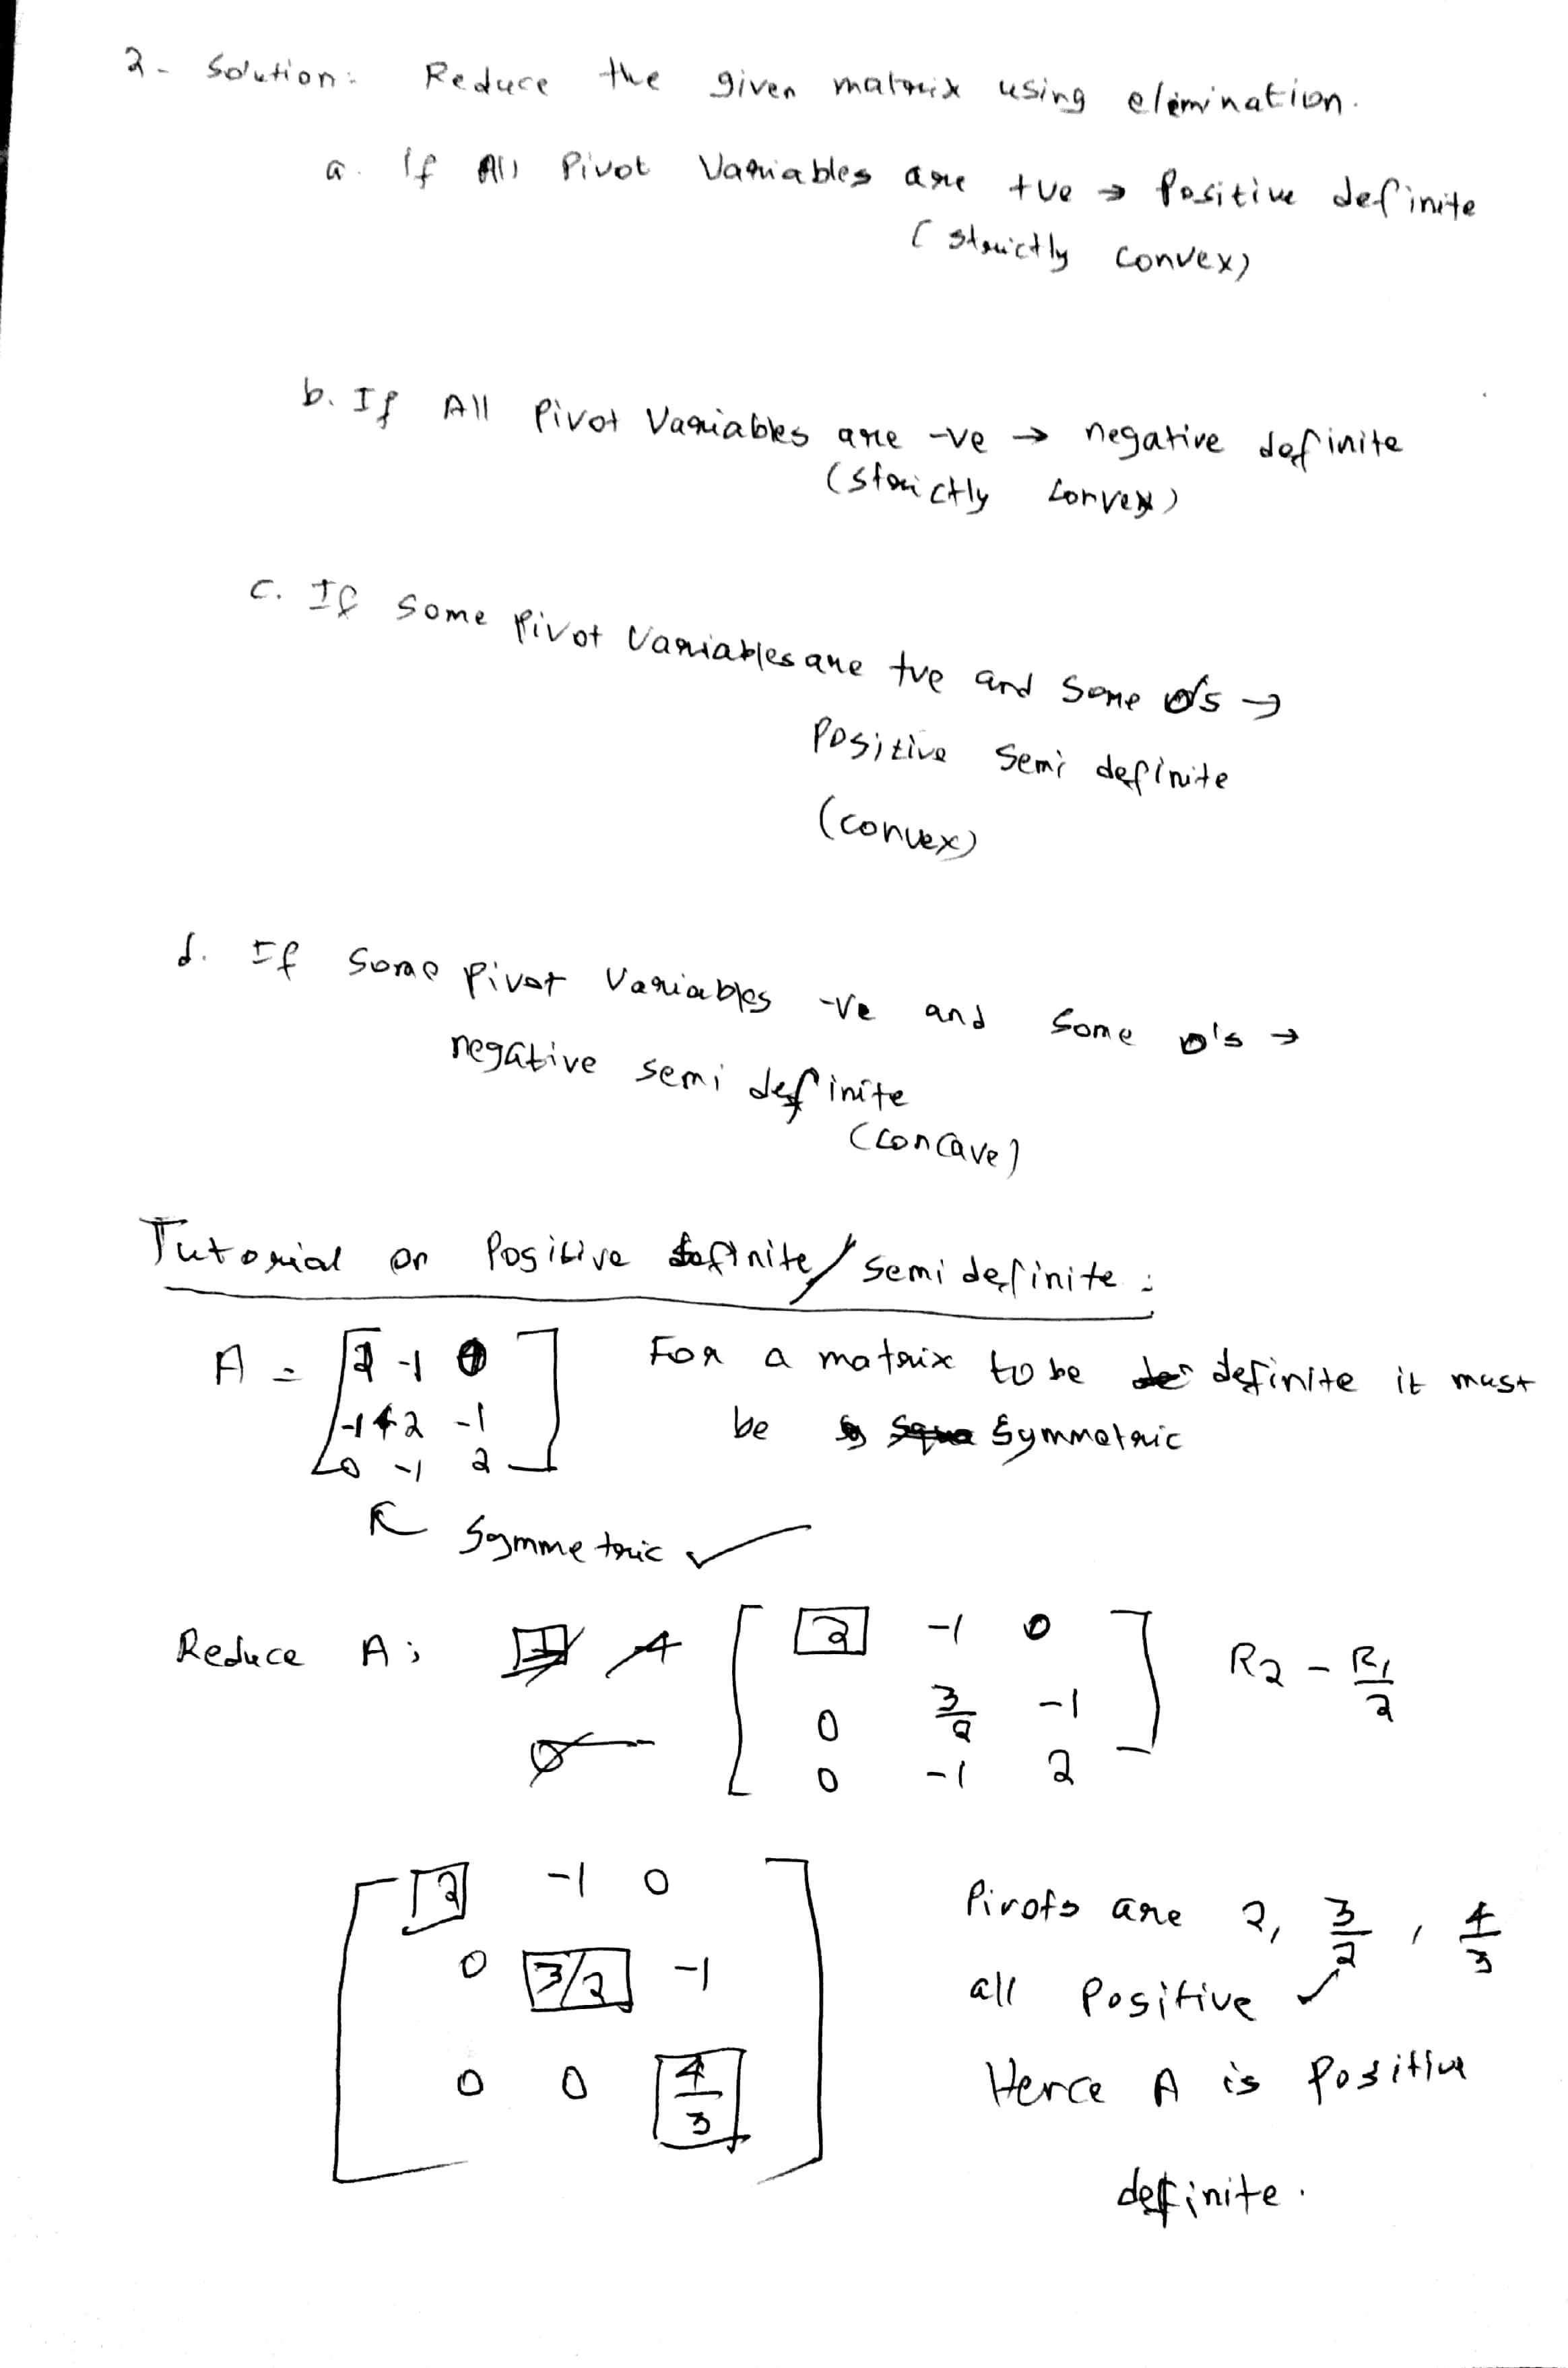 2- Solution: Reduce the given matrix using elimination.
a. If All Pivot Variables are +ve → Positive definite
(strictly convex)
b. If All Pivot Variables are -ve → negative definite
(strictly convex)
c. If some Pivot Variables are +ve and some 0's →
Positive semi definite
(convex)
d. If some pivot Variables -ve and some 0's →
negative semi definite
(concave)
Tutorial on Positive definite/semi definite :
A = [ 2 -1 0
-1 +2 -1
0 -1 2 ]
For a matrix to be definite it must
be Symmetric
Symmetric ✓
Reduce A ; [ 2 -1 0
0 3/2 -1
0 -1 2 ]
R2 - R1/2
[ 2 -1 0
0 3/2 -1
0 0 4/3 ]
Pivots are 2, 3/2, 4/3
all Positive ✓
Hence A is Positive
definite.